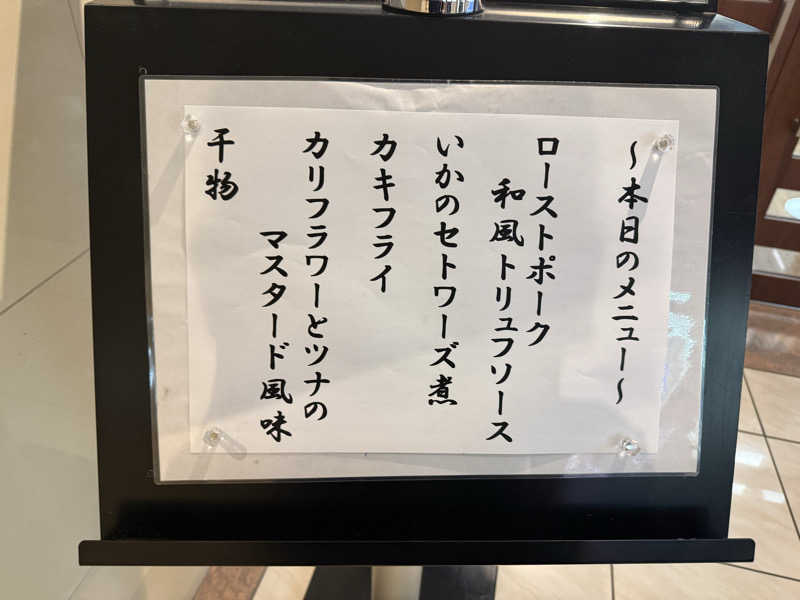 ～本日のメニュー～
ローストポーク
和風トリュフソース
いかのセトワーズ煮
カキフライ
カリフラワーとツナの
マスタード風味
干物